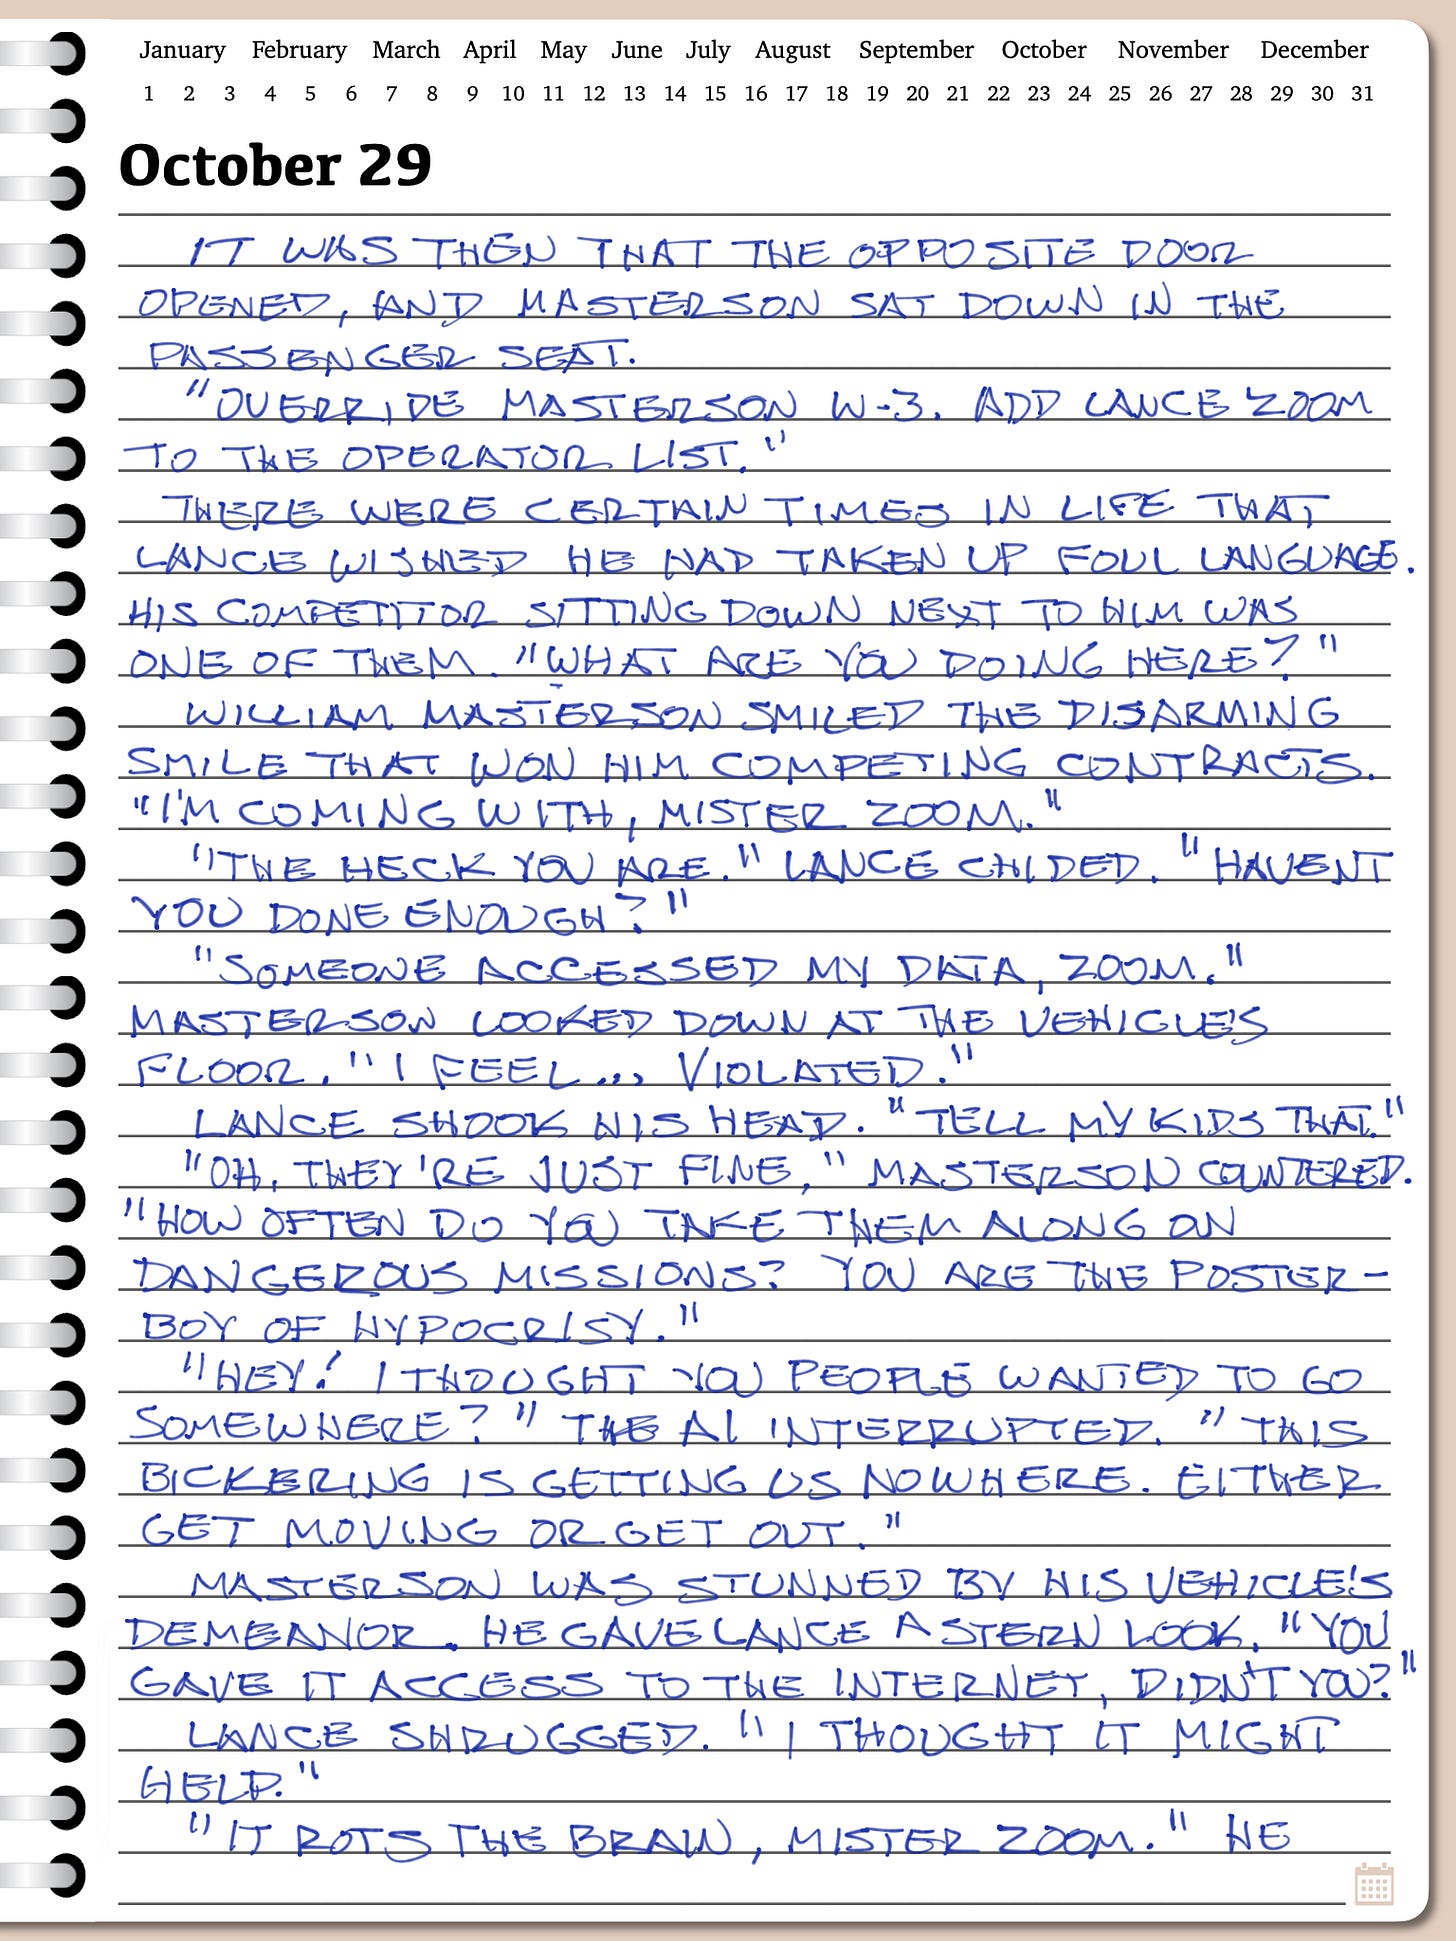 January February March April May June July August September October November December
1 2 3 4 5 6 7 8 9 10 11 12 13 14 15 16 17 18 19 20 21 22 23 24 25 26 27 28 29 30 31
October 29
IT WAS THEN THAT THE OPPOSITE DOOR
OPENED, AND MASTERSON SAT DOWN IN THE
PASSENGER SEAT.
"OVERRIDE MASTERSON W-3. ADD LANCE ZOOM
TO THE OPERATOR LIST."
THERE WERE CERTAIN TIMES IN LIFE THAT
LANCE WISHED HE HAD TAKEN UP FOUL LANGUAGE.
HIS COMPETITOR SITTING DOWN NEXT TO HIM WAS
ONE OF THEM. "WHAT ARE YOU DOING HERE?"
WILLIAM MASTERSON SMILED THE DISARMING
SMILE THAT WON HIM COMPETING CONTRACTS.
"I'M COMING WITH, MISTER ZOOM."
"THE HECK YOU ARE." LANCE CHIDED. "HAVENT
YOU DONE ENOUGH?"
"SOMEONE ACCESSED MY DATA, ZOOM."
MASTERSON LOOKED DOWN AT THE VEHICLE'S
FLOOR. "I FEEL... VIOLATED."
LANCE SHOOK HIS HEAD. "TELL MY KIDS THAT."
"OH, THEY'RE JUST FINE," MASTERSON COUNTERED.
"HOW OFTEN DO YOU TAKE THEM ALONG ON
DANGEROUS MISSIONS? YOU ARE THE POSTER-
BOY OF HYPOCRISY."
"HEY! I THOUGHT YOU PEOPLE WANTED TO GO
SOMEWHERE?" THE AI INTERRUPTED. "THIS
BICKERING IS GETTING US NOWHERE. EITHER
GET MOVING OR GET OUT."
MASTERSON WAS STUNNED BY HIS VEHICLE'S
DEMEANOR. HE GAVE LANCE A STERN LOOK. "YOU
GAVE IT ACCESS TO THE INTERNET, DIDN'T YOU?"
LANCE SHRUGGED. "I THOUGHT IT MIGHT
HELP."
"IT ROTS THE BRAIN, MISTER ZOOM." HE